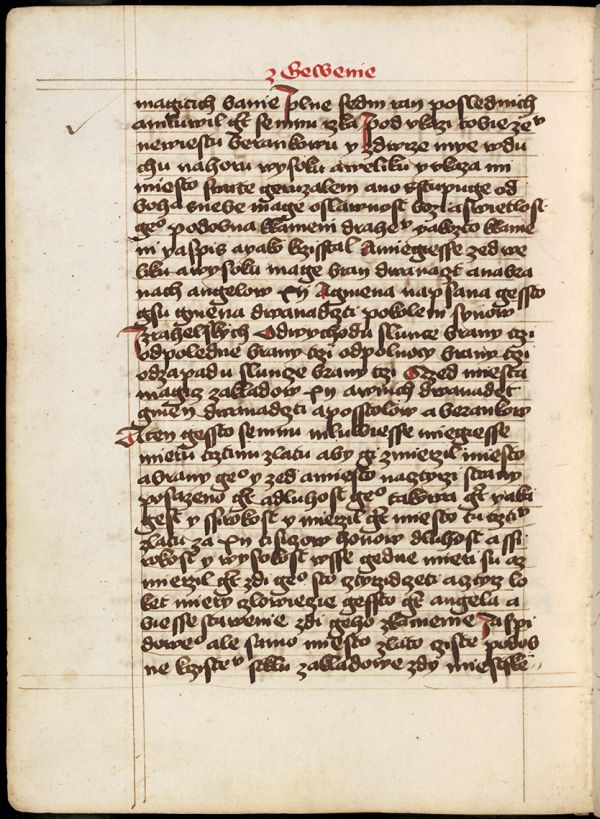 z Gewenie
magicich banie plne sedm ran poslednich
amluwil gt semnu rzka pod vkazi tobie zeᵒ
newiestu berankowu y zdwize mye wdu
chu nahoru wysoku aweliku y vkaza mi
miesto swate geruzalem ano sstupuge od
boha snebe mage oslawnost bozi aswietlost
geᵒ podobna kameni draheᵒ yakzto kame
ni yaspis ayak krisstal Amiegiesse zed we
liku awysoku mage bran dwanazt anabra
nach angelow xii Agmena napsana gessto
gsu gmena dwanadzti pokolem synow
Izrahelskych Odwychodu slunce brany tzi
odpoledne brany tzi odpolnocy brany tzi
odzapadu slunze brany tzi Ozed miesta
magiz zakladow xii awnich dwanadct
gmen dwanadzti aposstolow a berankow
Aten gessto semnu mluwiesse miegiesse
mieru trztinu zlatu aby gi zmieril miesto
abrany geᵒ y zed amiesto naztyrzi strany
posazeno gt adluhost geᵒ takwa gt yaki
gest y ssirokost y mierzil gt miesto tu trztiᵛ
zlatu za xii tisizow honow dluhost a ssi
rokost y wysokost wsse gedne mieri su az
mierzil gt zdi geᵒ sto ztyrzidzeti aztyrz lo
ket miery zlowiezie gessto gt angela a
biesse stawenie zdi geho zkamenie Jaspi
doweᵒ ale samo miesto zlato ziste podob
ne krzisteᵛ sklu zakladowe zdy miestske